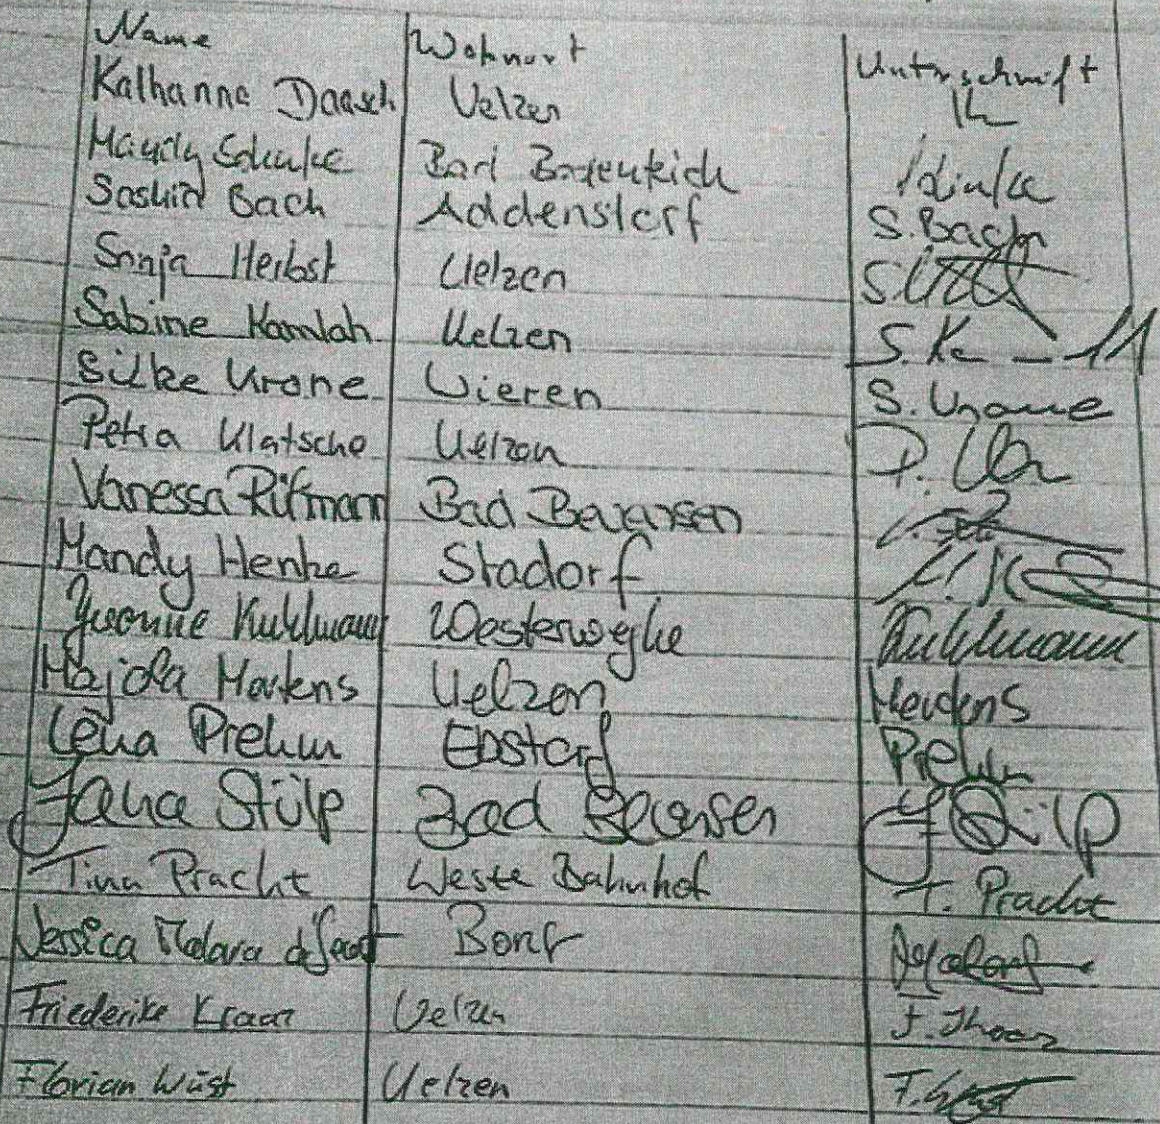 Name Wohnort Unterschrift
Kathanna Daasch Uelzen
Mandy Schulze Bad
Bach Addenstorf S. Bach
Sonja Herbst Uelzen
Sabine Kamlah Uelzen S. K
Silke Krone Wieren S. Krone
Petra Klatsche Uelzen P.
Vanessa Rißmann Bad Bevensen
Mandy Henke Stadorf
Yvonne Kuhlmann Westerweyhe Kuhlmann
Martens Uelzen Martens
Lena Prehm Ebstorf Prehm
Jana Stülp Bad Bevensen J Stülp
Tina Pracht Weste Bahnhof T. Pracht
Jessica
Friederike Kraaz Uelzen F. Kraaz
Florian Wüst Uelzen F.